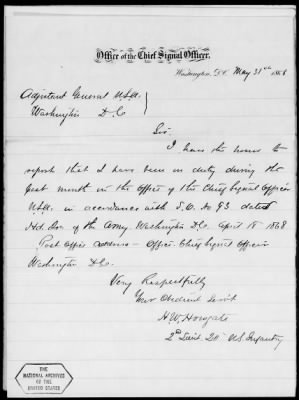 Office of the Chief Signal Officer,
Washington, D.C. May 31st 1868
Adjutant General U.S.A.
Washington D.C.
Sir.
I have the honor to
report that I have been on duty during the
past month in the Office of the Chief Signal Officer
U.S.A. in accordance with S.O. No 93 dated
Hd. Qrs. of the Army Washington D.C. April 18 1868
Post Office address - Office Chief Signal Officer
Washington D.C.
Very Respectfully
Your Obedient Serv't
H.W. Howgate
2nd Lieut 20th U.S. Infantry
THE
NATIONAL ARCHIVES
OF THE
UNITED STATES